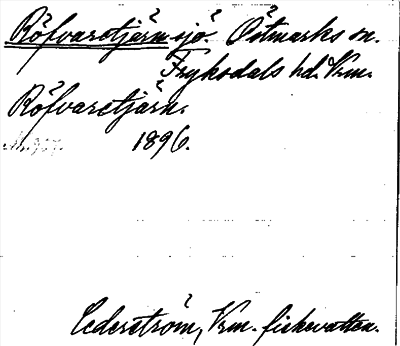 Röfvaretjärn sjö. Östmarks sn.
Fryksdals hd. Vrm.
Röfvaretjärn.
1896.
Cederström, Vrm. fiskevatten.